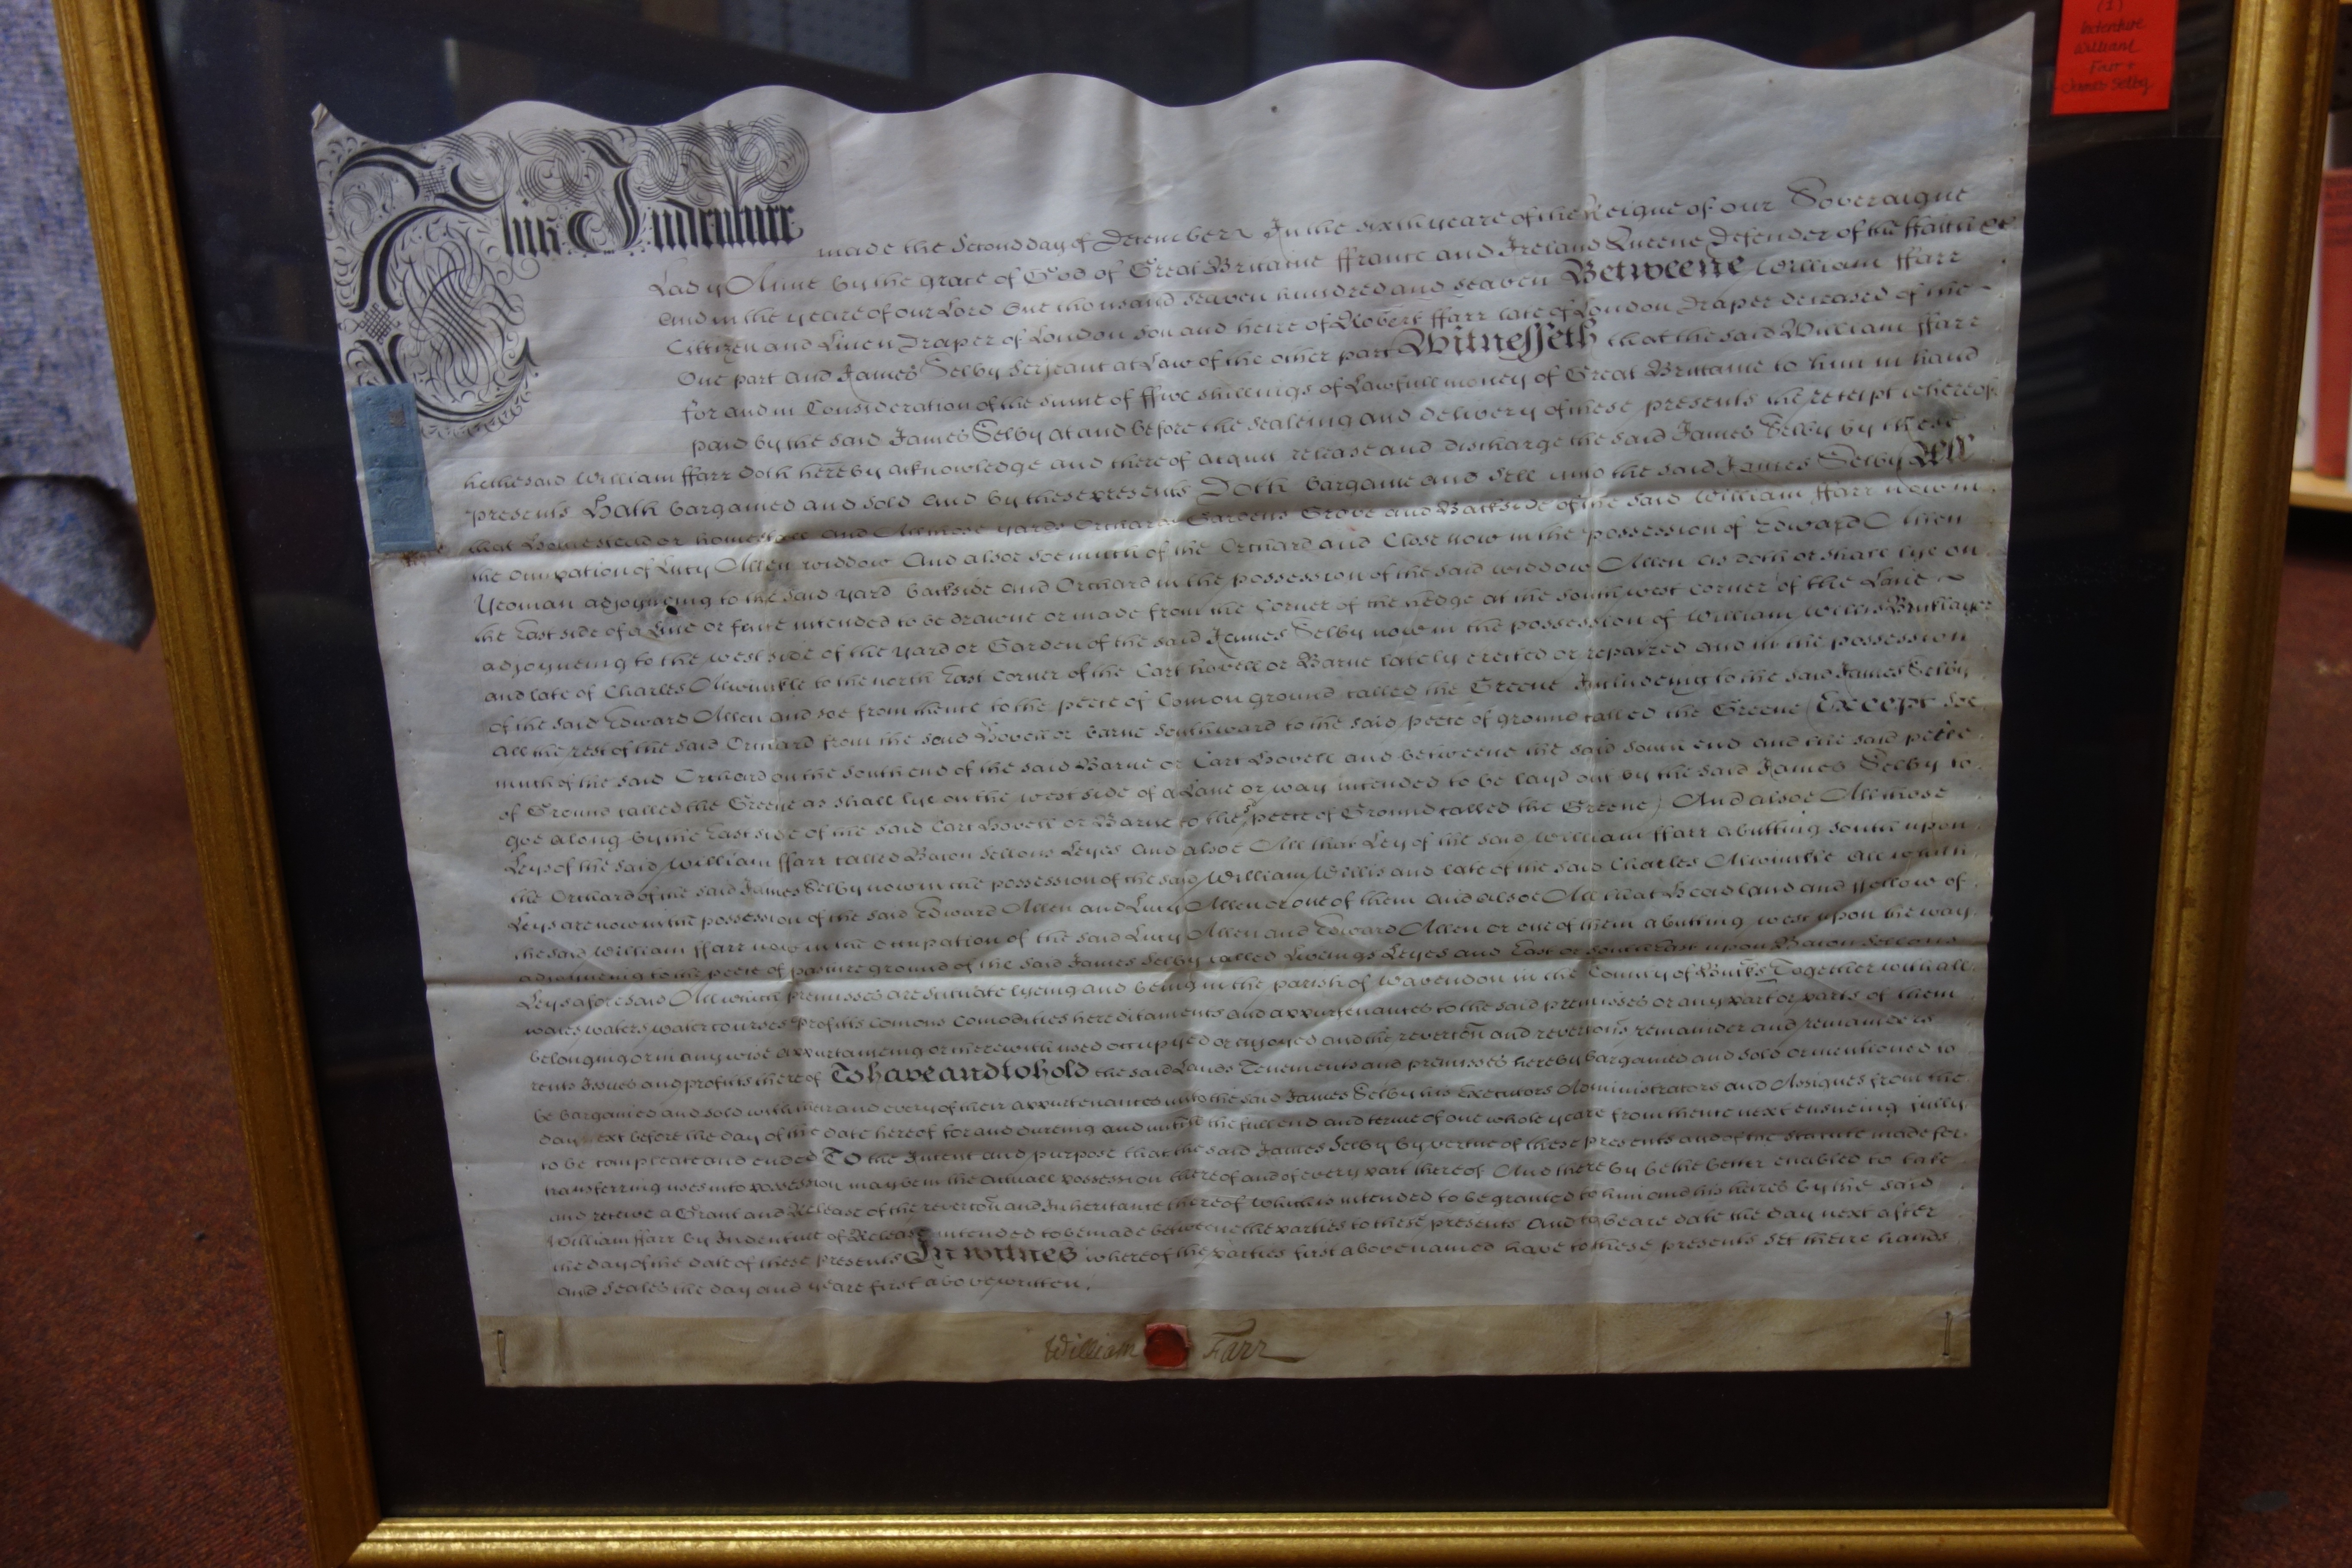 (1)
Indenture
William
Farr +
James Selby
This Indenture made the Second day of December In the sixth yeare of the Reigne of our Soveraigne
Lady Anne by the grace of God of Great Brittaine ffrance and Ireland Queene Defender of the ffaith &c
And in the yeare of our Lord One thousand seaven hundred and seaven Betweene William ffarr
Cittizen and Linen Draper of London son and heire of Robert ffarr late of London Draper deceased of the
One part and James Selby Serjeant at Law of the other part Witnesseth that the said William ffarr
for and in Consideration of the sume of ffive shillings of Lawfull money of Great Brittaine to him in hand
paid by the said James Selby at and before the sealeing and delivery of these presents the receipt whereof
he the said William ffarr doth hereby acknowledge and thereof acquit release and discharge the said James Selby by these
presents Hath bargained and sold And by these presents Doth bargaine and sell unto the said James Selby All
that Homestead or homestall and All those yards Orchards Gardens Grove and Backside of the said William ffarr now in
the occupation of Lucy Allen widdow And alsoe soe much of the Orchard and Close now in the possession of Edward Allen
Yeoman adjoyneing to the said yard backside and Orchard in the possession of the said widdow Allen as doth or shall lye on
the East side of a Line or fence intended to be drawne or made from the Corner of the hedge at the south west corner of the Lane
adjoyneing to the west side of the yard or Garden of the said James Selby now in the possession of William Willis Bricklayer
and late of Charles Allwinkle to the north East Corner of the Cart hovell or Barne lately erected or repaired and in the possession
of the said Edward Allen and soe from thence to the peece of Comon ground called the Greene Includeing to the said James Selby
All the rest of the said Orchard from the said Hovell or barne southward to the said peece of ground called the Greene (Except soe
much of the said Orchard on the south end of the said Barne or Cart Hovell and betweene the said south end and the said peece
of Ground called the Greene as shall lye on the west side of a Lane or way intended to be layd out by the said James Selby to
goe along by the East side of the said Cart Hovell or Barne to the sd peece of Ground called the Greene) And alsoe All those
Leys of the said William ffarr called Bacon Sellons Leyes And alsoe All that Ley of the said William ffarr abutting south upon
the Orchard of the said James Selby now in the possession of the said William Willis and late of the said Charles Allwinkle All which
Leys are now in the possession of the said Edward Allen and Lucy Allen or one of them And alsoe All that Headland and ffellow of
the said William ffarr now in the occupation of the said Lucy Allen and Edward Allen or one of them abutting west upon the way
adjoyneing to the peece of pasture ground of the said James Selby called Leyes and East or south East upon Bacon Sellons
Leys aforesaid All which premisses are scituate lyeing and being in the parish of Wavendon in the County of Bucks Together with all
waies waters watercourses profitts comons comodities hereditaments and appurtenances to the said premisses or any part or parts of them
belonging or in any wise appurtaineing or therewith used occupyed or enjoyed and the revercon and revercons remainder and remainders
rents issues and profitts thereof To have and to hold the said Lands Tenements and premisses hereby bargained and sold or mentioned to
be bargained and sold with their and every of their appurtenances unto the said James Selby his Executors Administrators and Assignes from the
day next before the day of the date hereof for and dureing and untill the full end and terme of one whole yeare from thence next ensueing fully
to be compleate and ended To the Intent and purpose that the said James Selby by vertue of these presents and of the statute made for
transferring uses into possession may be in the actuall possession thereof and of every part thereof And thereby be the better enabled to take
and receive a Grant and Release of the revercon and Inheritance thereof Which is intended to be granted to him and his heires by the said
William ffarr by Indenture of Release intended to be made betweene the parties to these presents And to beare date the day next after
the day of the date of these presents In witnes whereof the parties first above named have to these presents set theire hands
and seales the day and yeare first above written.
William Farr